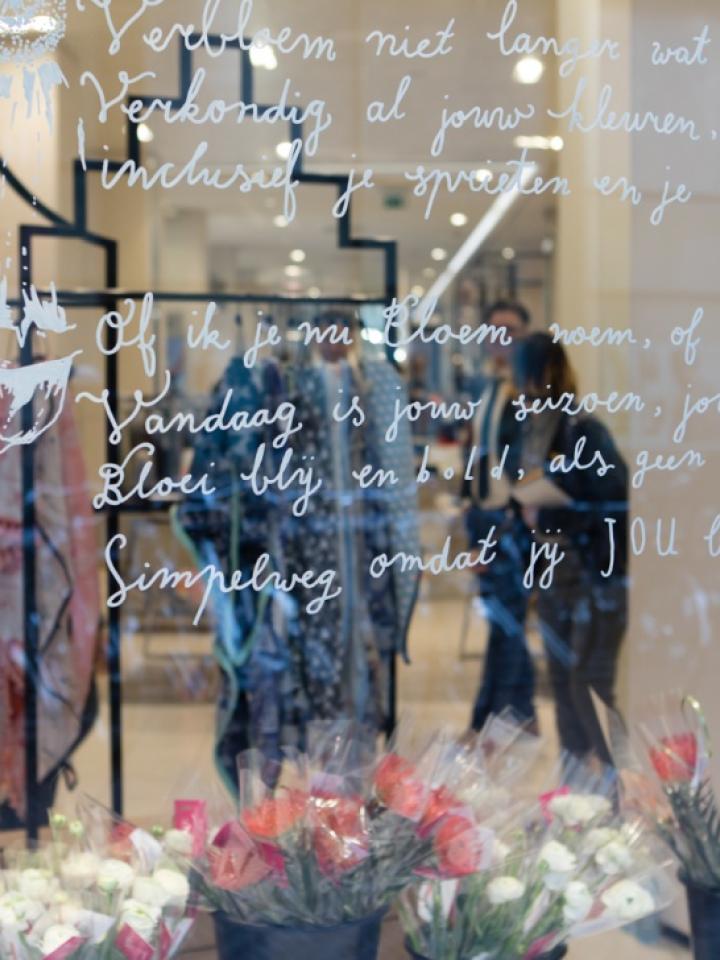 Verbloem niet langer wat
Verkondig al jouw kleuren,
inclusief je sprieten en je
Of ik je nu Bloem noem, of
Vandaag is jouw seizoen,
Bloei blij en bold, als geen
Simpelweg omdat jij JOU